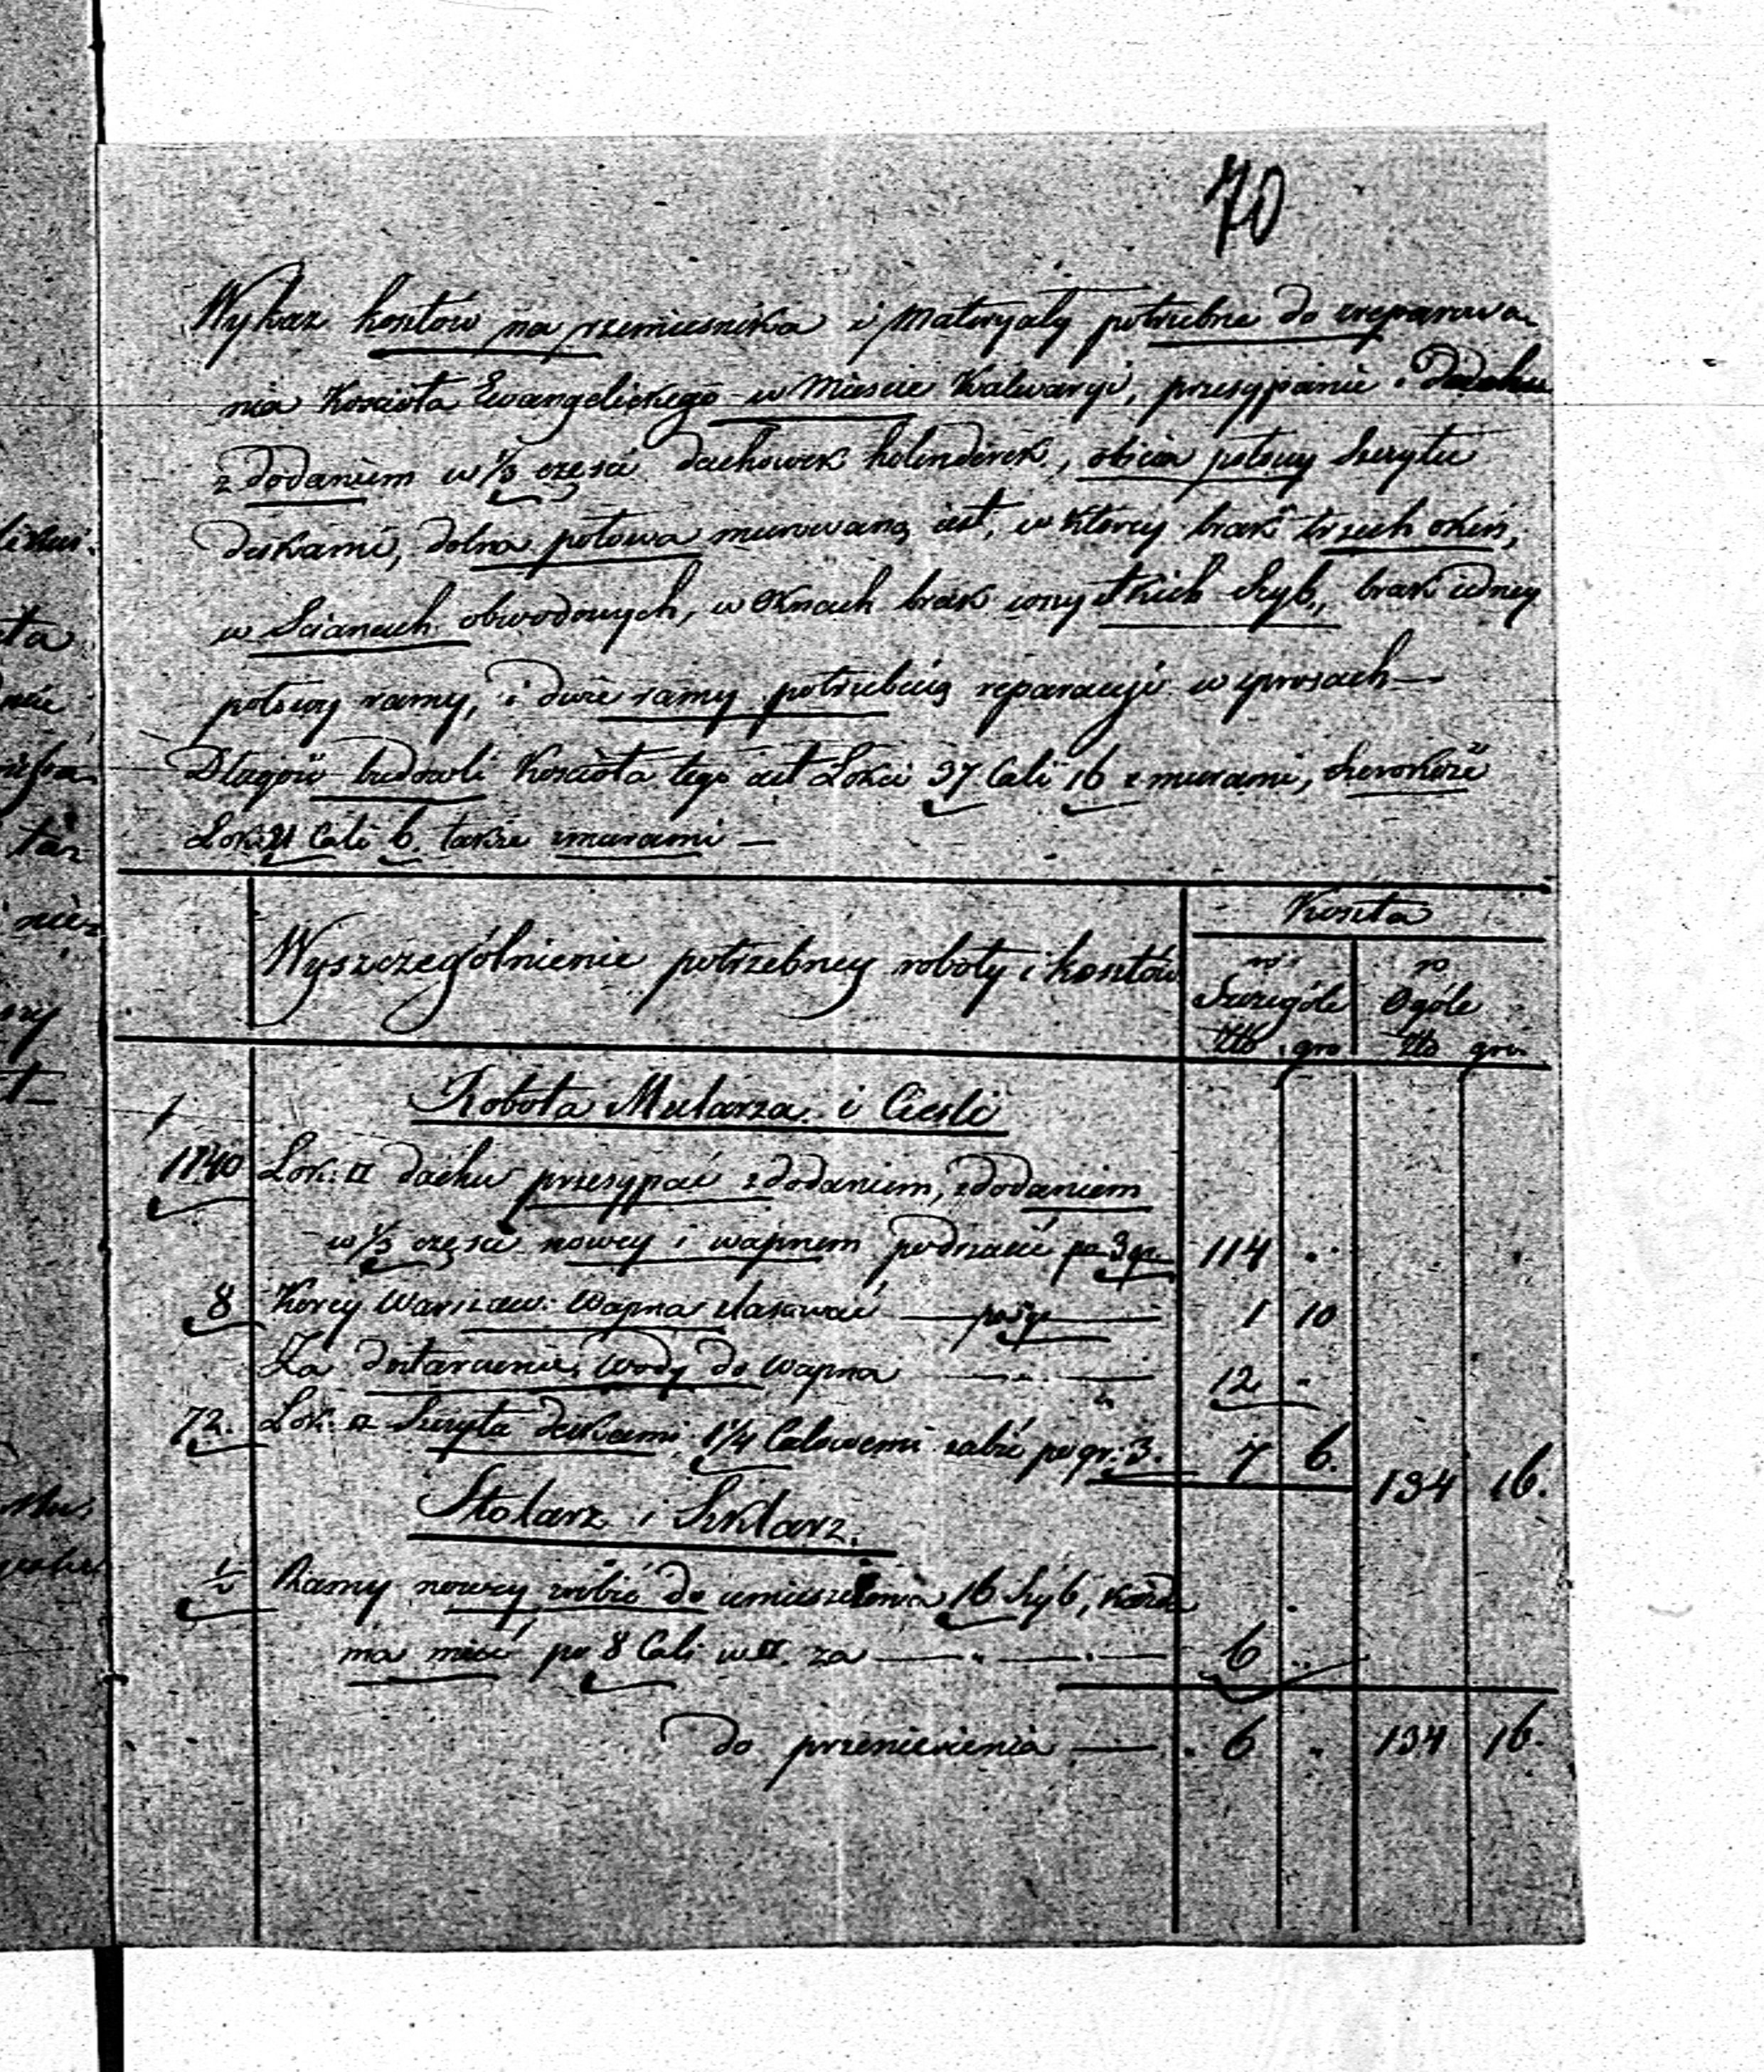 70
Wykaz kosztów na rzemieśnika i Materyały potrzebne do zreparowa-
nia Kościoła Ewangelickiego w Mieście Kalwaryi, przesypanie dachu
z dodaniem w 1/3 części dachówek holenderek, obicia połowy Szczytu
deskami, dolna połowa murowaną iest, w którey brak trzech okien,
w Scianach obwodowych, w Oknach brak szyb, brak iedney
połowy ramy, i dwie ramy potrzebuią reparacyi w sprosach—
Długość budowli Kościoła tego iest Łokci 37 Cali 16 z murami, Szerokość
Łok: 21 Cali 6. także z murami —
Koszta
Wyszczególnienie potrzebney roboty i kosztów
w Szczególe
w Ogóle
Złto gro Złto gro
Robota Mularza i Cieśli
1140 Łok: □ dachu przesypać z dodaniem, z dodaniem
w 1/3 części nowey i wapnem podrzucić po 3 gr. 114 "
8 Korcy Warszaw: Wapna zlasować — po 5 gr — 1 10
Za dostarczenie Wody do Wapna — " — 12 "
72. Łok: □ Szczytu deskami 1 1/4 Calowemi zabić po gr: 3. 7 6. 134 16.
Stolarz i Szklarz.
1/2 Ramy nowey zrobić do umieszczenia 16 Szyb, każda
ma mieć po 8 Cali w □. za — " — 6 "
do przeniesienia — 6 " 134 16.